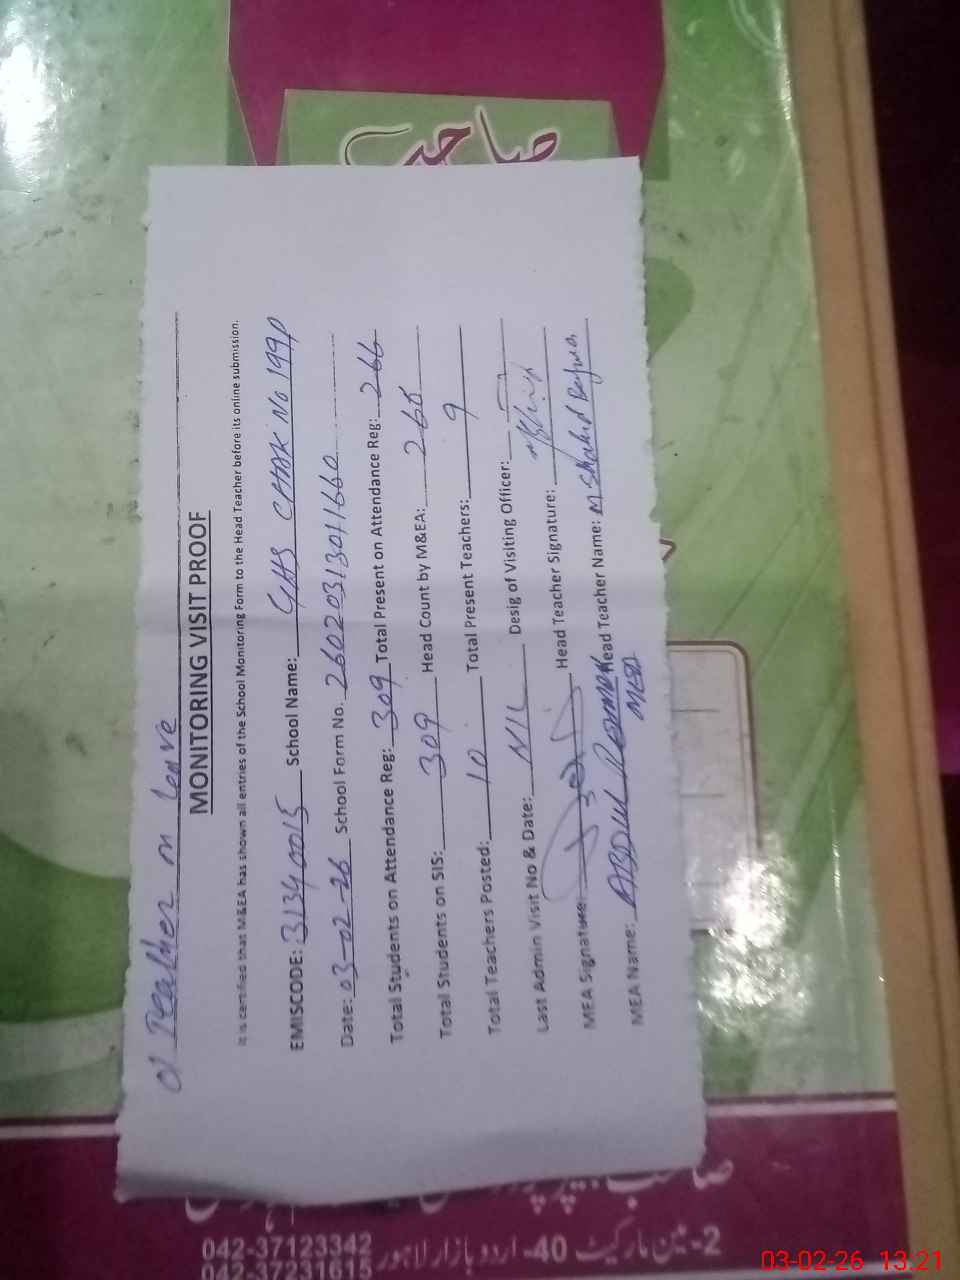 صاحب
01 Teacher on leave
MONITORING VISIT PROOF
It is certified that M&EA has shown all entries of the School Monitoring Form to the Head Teacher before its online submission.
EMISCODE: 31340015 School Name: GHS CHAK No 199P
Date: 03-02-26 School Form No. 260203131301660
Total Students on Attendance Reg: 309 Total Present on Attendance Reg: 266
Total Students on SIS: 309 Head Count by M&EA: 268
Total Teachers Posted: 10 Total Present Teachers: 9
Last Admin Visit No & Date: NIL Desig of Visiting Officer:
MEA Signature: Head Teacher Signature:
MEA Name: ABDUL REHMAN Head Teacher Name: M Shahid
MEA
2-مین مارکیٹ 40- اردو بازار لاہور 042-37123342
042-37231615
03-02-26 13:21